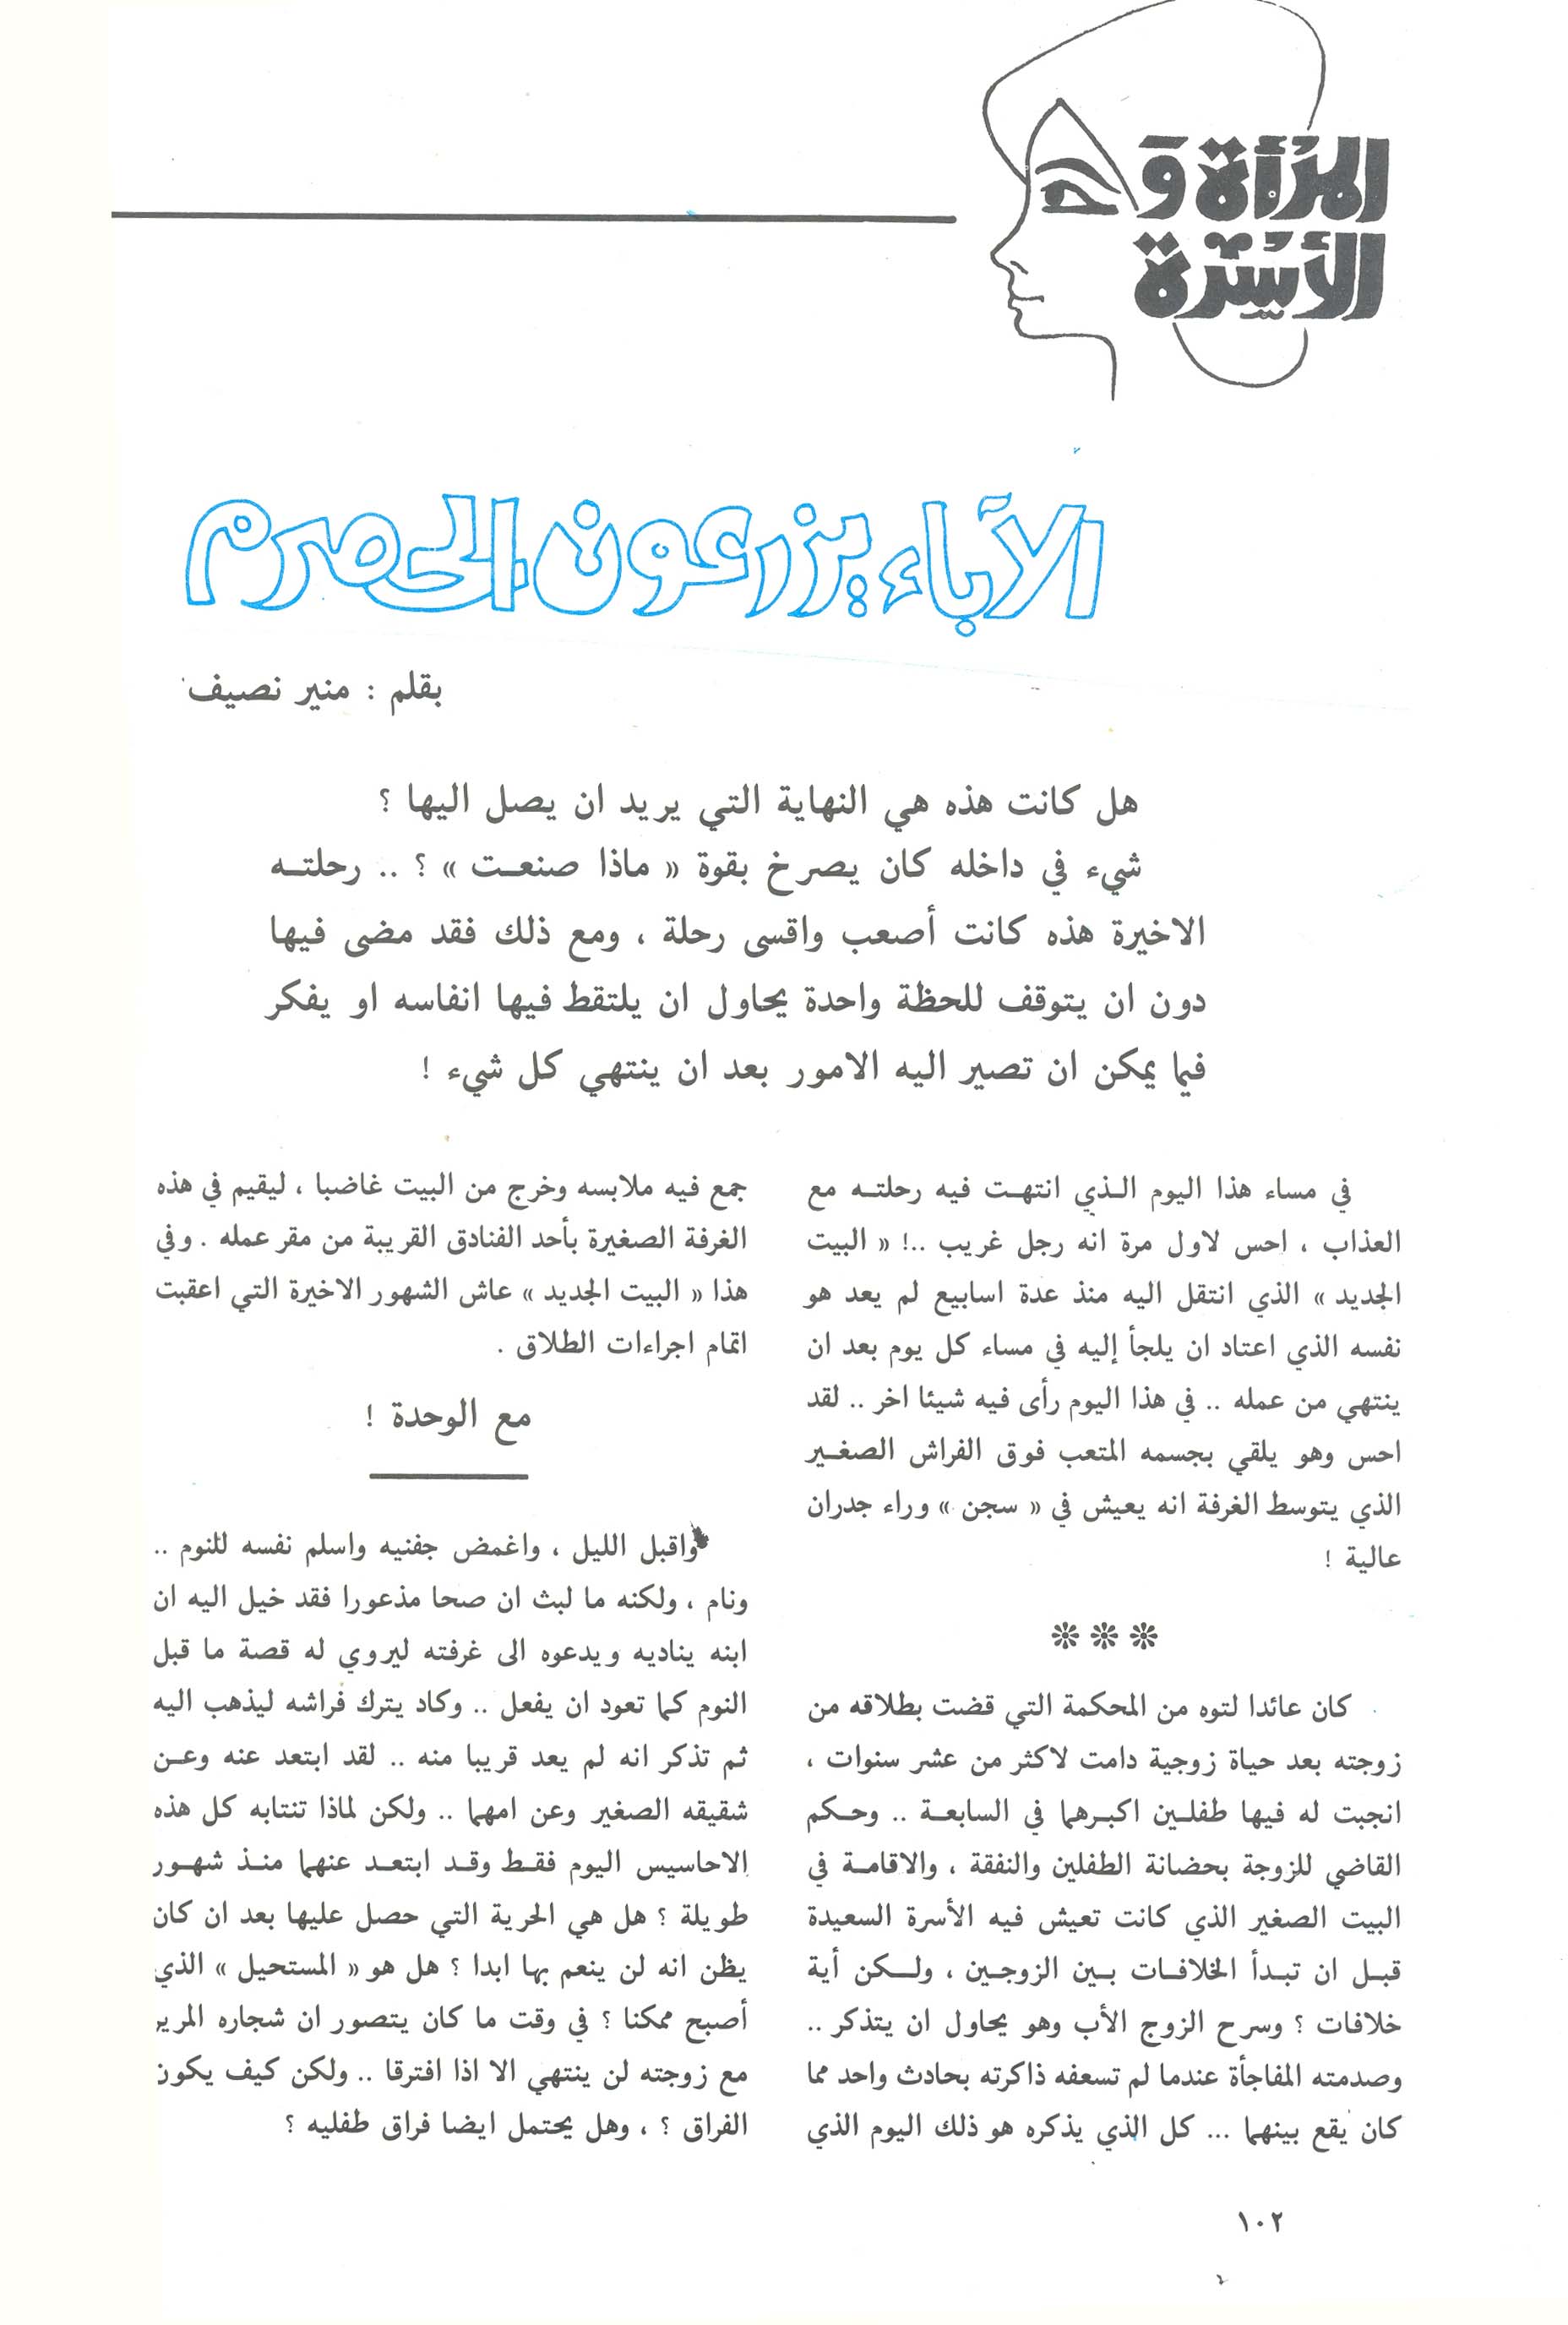 المرأة و
الأسرة
الآباء يزرعون الحصرم
بقلم : منير نصيف
هل كانت هذه هي النهاية التي يريد ان يصل اليها ؟
شيء في داخله كان يصرخ بقوة « ماذا صنعـت » ؟ .. رحلتـه
الاخيرة هذه كانت أصعب واقسى رحلة ، ومع ذلك فقد مضى فيها
دون ان يتوقف للحظة واحدة يحاول ان يلتقط فيها انفاسه او يفكر
فيما يمكن ان تصير اليه الامور بعد ان ينتهي كل شيء !
في مساء هذا اليوم الـذي انتهـت فيه رحلتـه مع
العذاب ، احس لاول مرة انه رجل غريب ..! « البيت
الجديد » الذي انتقل اليه منذ عدة اسابيع لم يعد هو
نفسه الذي اعتاد ان يلجأ إليه في مساء كل يوم بعد ان
ينتهي من عمله .. في هذا اليوم رأى فيه شيئا اخر .. لقد
احس وهو يلقي بجسمه المتعب فوق الفراش الصغـير
الذي يتوسط الغرفة انه يعيش في « سجن » وراء جدران
عالية !
❊ ❊ ❊
كان عائدا لتوه من المحكمة التي قضت بطلاقه من
زوجته بعد حياة زوجية دامت لاكثر من عشر سنوات ،
انجبت له فيها طفلـين اكبـرهما في السابعـة .. وحـكم
القاضي للزوجة بحضانة الطفلين والنفقة ، والاقامـة في
البيت الصغير الذي كانت تعيش فيه الأسرة السعيدة
قبـل ان تبـدأ الخلافـات بـين الزوجـين ، ولـكن أية
خلافات ؟ وسرح الزوج الأب وهو يحاول ان يتذكر ..
وصدمته المفاجأة عندما لم تسعفه ذاكرته بحادث واحد مما
كان يقع بينهما ... كل الذي يذكره هو ذلك اليوم الذي
جمع فيه ملابسه وخرج من البيت غاضبا ، ليقيم في هذه
الغرفة الصغيرة بأحد الفنادق القريبة من مقر عمله . وفي
هذا « البيت الجديد » عاش الشهور الاخيرة التي اعقبت
اتمام اجراءات الطلاق .
مع الوحدة !
واقبل الليل ، واغمض جفنيه واسلم نفسه للنوم ..
ونام ، ولكنه ما لبث ان صحا مذعورا فقد خيل اليه ان
ابنه يناديه ويدعوه الى غرفته ليروي له قصة ما قبل
النوم كما تعود ان يفعل .. وكاد يترك فراشه ليذهب اليه
ثم تذكر انه لم يعد قريبا منه .. لقد ابتعد عنه وعـن
شقيقه الصغير وعن امهما .. ولكن لماذا تنتابه كل هذه
الاحاسيس اليوم فقـط وقـد ابتعـد عنهما منـذ شهـور
طويلة ؟ هل هي الحرية التي حصل عليها بعد ان كان
يظن انه لن ينعم بها ابدا ؟ هل هو « المستحيل » الذي
أصبح ممكنا ؟ في وقت ما كان يتصور ان شجاره المرير
مع زوجته لن ينتهي الا اذا افترقا .. ولكن كيف يكون
الفراق ؟ ، وهل يحتمل ايضا فراق طفليه ؟
١٠٢